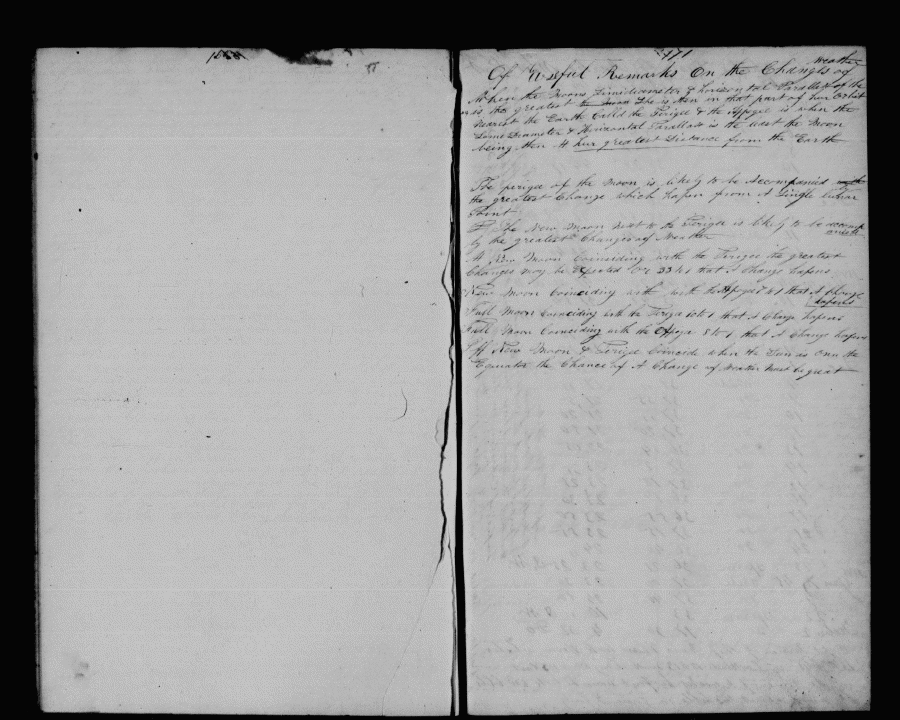 171
Of Useful Remarks On the Changes of Weather
When the Moons Simidiameter & horizontal Parallax of the
is the greatest She is then in that part of hur Orbit
Nearest the Earth Called the Perigee & the Appogee is when the
Simi Diameter & Horizontal Parallax is the least the Moon
being then at hur greatest Distance from the Earth
The perigee of the Moon is likely to be Accompanied
the greatest Change which hapen from A Single Lunar
Point
The New Moon Next to the Perigee is likely to be accompanied
by the greatest Changes of Weather
A New Moon Coinciding with the Perigee the greatest
Changes may be Expected Or 33 to 1 that A Change hapens
New Moon Coinciding with with the Appogee to 1 that A Change hapens
Full Moon Coinciding with the Perigee 10 to 1 that A Change hapens
Full Moon Coinciding with the Appogee 8 to 1 that A Change hapens
If New Moon & Perigee Coincide when the Sun is Onn the
Equator the Chance of A Change of Weather Must be great